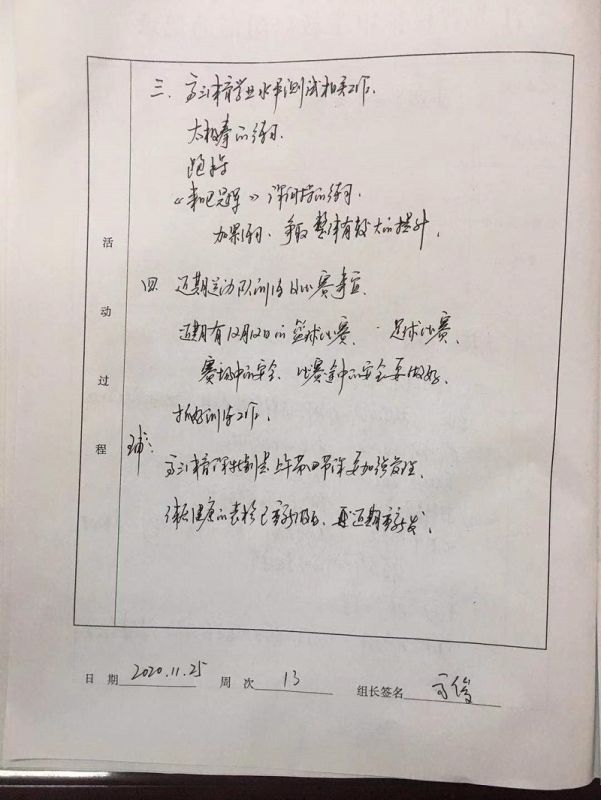 三、高三体育学业水平测试相关工作。
太极拳的练习。
跑操
课间操的练习。
加紧练习、争取整体有较大的提升。
四、近期运动队训练及比赛事宜。
近期有12月12日的篮球比赛、足球比赛、
赛场中的安全、比赛途中的安全要做好。
抓好训练工作。
补:
高三体育课 上午第四节课要加强管理。
体质健康的表格已 近期
活动过程
日期 2020.11.25 周次 13 组长签名